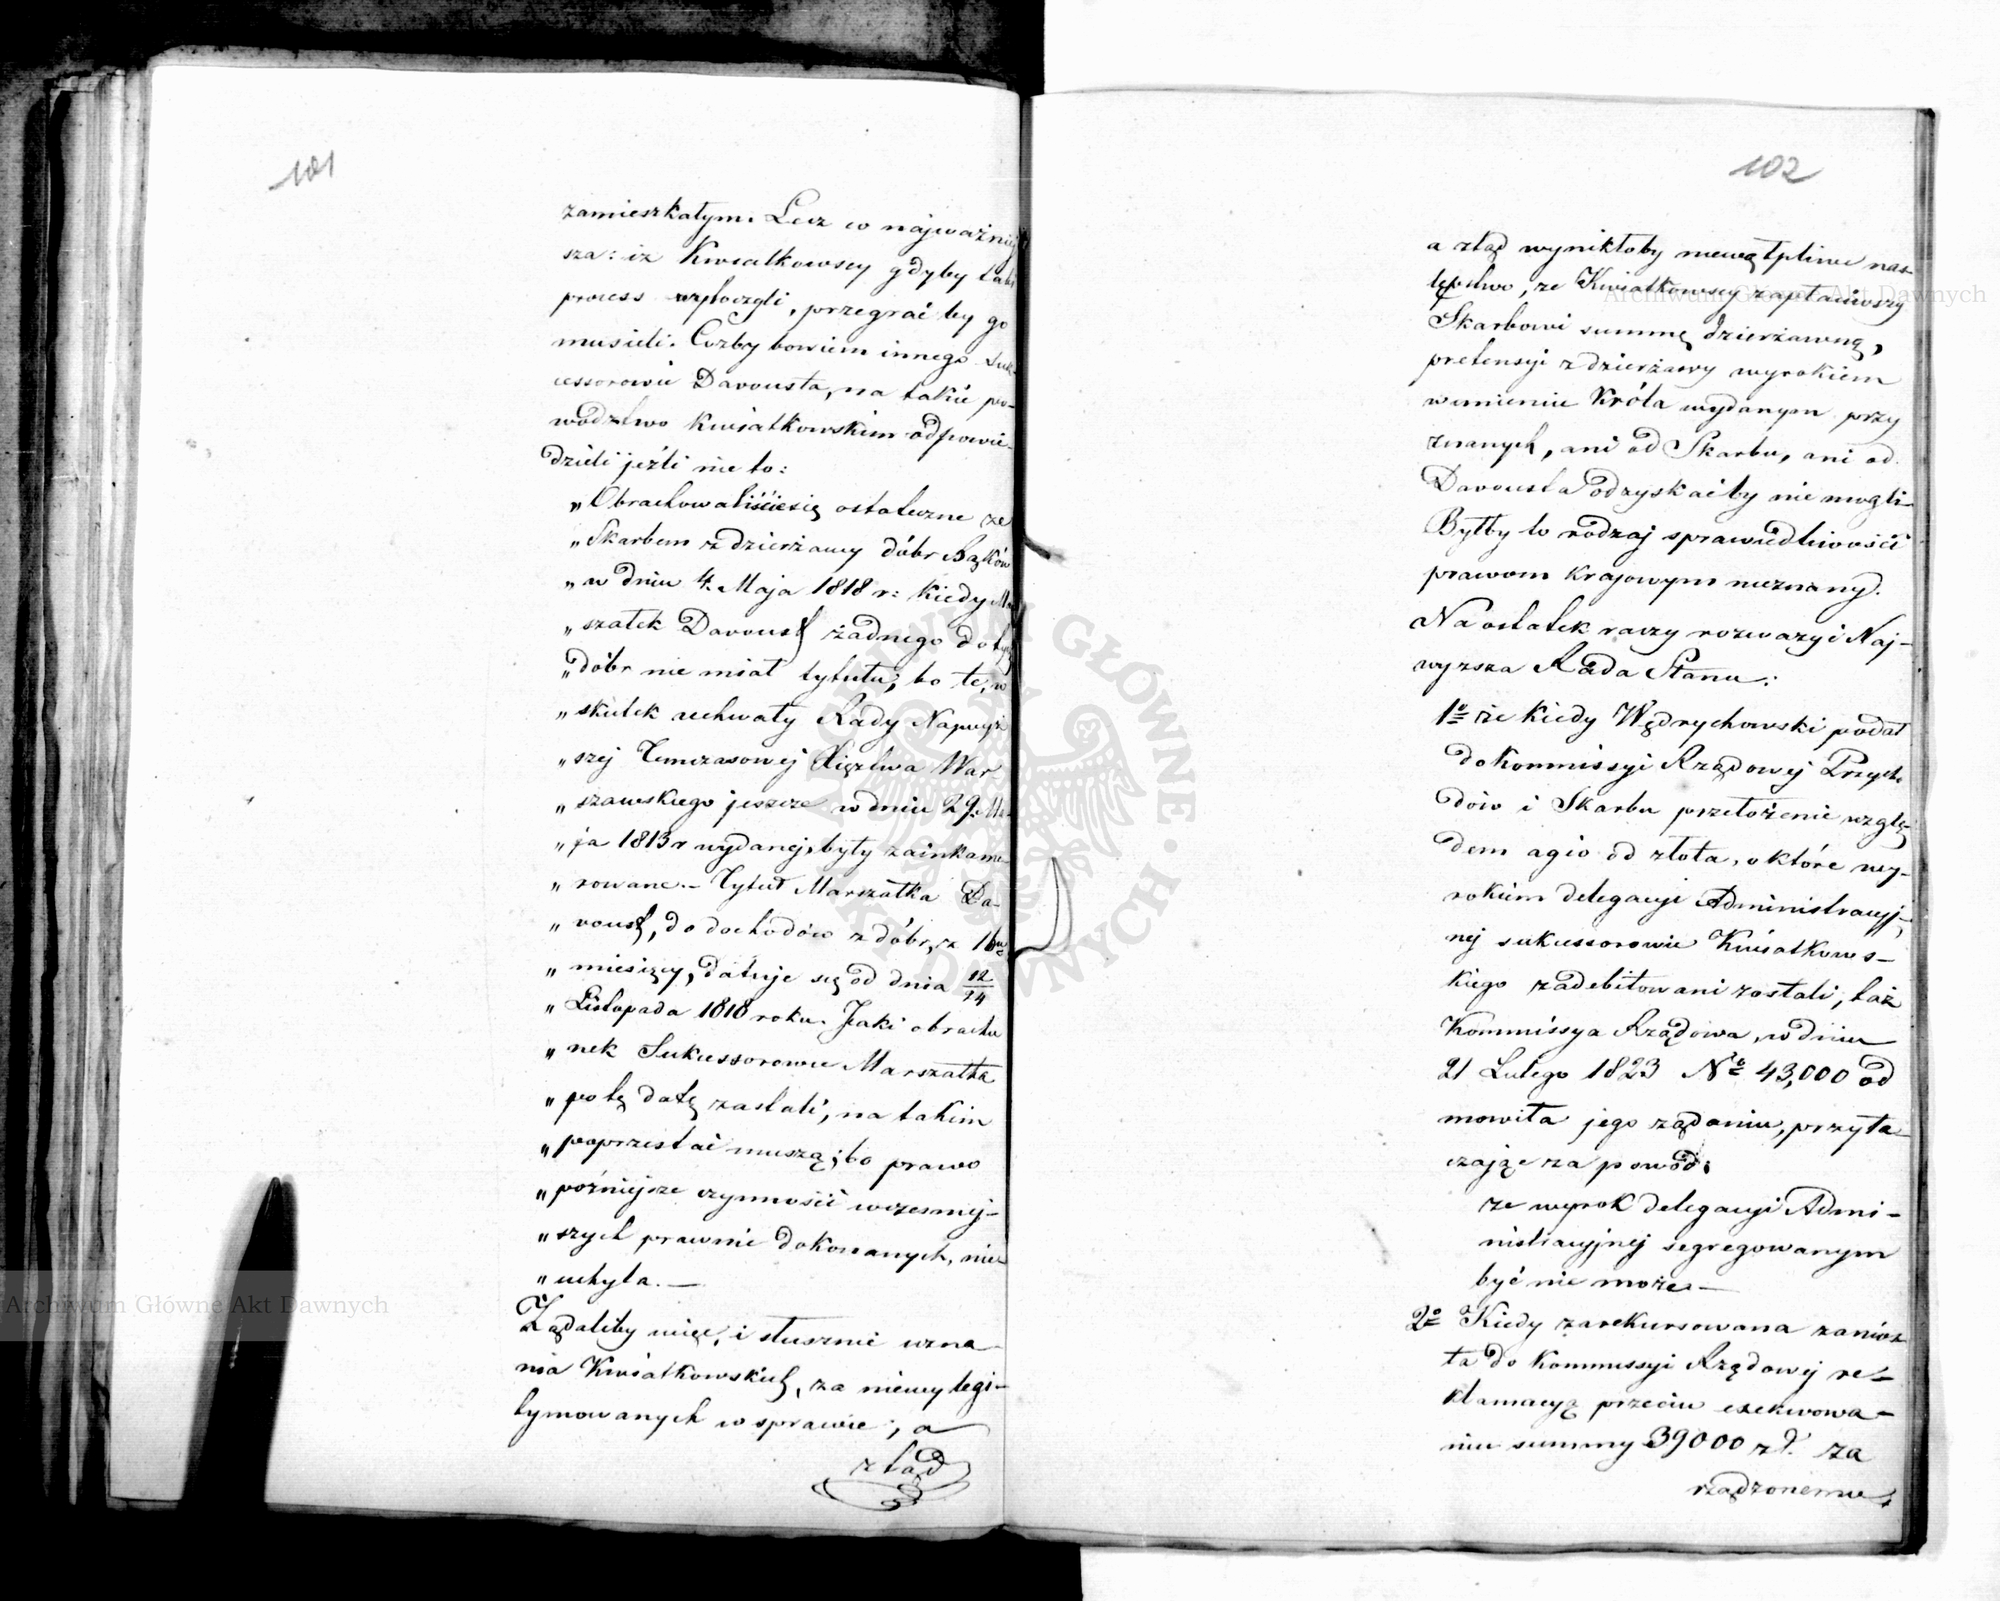 101
zamieszkałym. Lecz co najważniej
sza: iż Kwiatkowscy gdyby taki
process wytoczyli, przegrać by go
musieli. Cożby bowiem innego Suk-
cessorowie Davousta, na takie po-
wództwo Kwiatkowskim odpowie-
dzieli jeźli nie to:
„Obrachowaliście się ostateczne ze
„Skarbem z dzierżawy dóbr Bąków
„w dniu 4. Maja 1818 r: kiedy Ma
„szałek Davoust żadnego do tych
„dóbr nie miał tytułu, bo te, w
„skutek uchwały Rady Najwyż
„szej Tymczasowej Xięztwa War
„szawskiego jeszcze w dniu 29. Ma-
„ja 1813 r wydanej, były zainkame
„rowane. – Tytuł Marszałka Da-
„voust, do dochodów z dóbr, z 16tu
„miesięcy, datuje się od dnia 12/24
„Listopada 1818 roku. Jaki obrachu
„nek Sukcessorowie Marszałka
„po tę datę zastali, na takim
„poprzestać muszą; bo prawo
„poźniejsze czynności wcześniej-
„szych prawnie dokonanych, nie
„uchyla. –
Żądaliby więc, i słusznie uzna-
nia Kwiatkowskich, za niewylegi-
tymowanych w sprawie; a
ztąd
102
a ztąd wynikłoby niewątpliwe nas-
tępstwo, że Kwiatkowscy zapłaciwszy
Skarbowi summę dzierżawną,
pretensyi z dzierżawy wyrokiem
w imieniu Króla wydanym przy
znanych, ani od Skarbu, ani od
Davousta odzyskać by nie mogli.
Byłby to rodzaj sprawiedliwości
prawom krajowym nieznany.
Na ostatek raczy rozważyć Naj-
wyższa Rada Stanu:
1º że kiedy Wędrychowski podał
do Kommissyi Rządowej Przycho
dów i Skarbu przełożenie wzglę-
dem agio od złota, o które wy-
rokiem delegacyi Administracyj-
nej sukcessorowie Kwiatkows-
kiego zadebitowani zostali, taż
Kommissya Rządowa, w dniu
21 Lutego 1823 Nº 43,000 od
mowiła jego żądaniu, przyta-
czając za powód:
że wyrok delegacyi Admi-
nistracyjnej segregowanym
być nie może –
2º Kiedy zarekursowana zanios
ła do Kommissyi Rządowej re-
klamacyą przeciw exekwowa-
niu summy 39000 zł. za
rządzonemu,
Archiwum Główne Akt Dawnych
Archiwum Główne Akt Dawnych
ARCHIWUM GŁÓWNE · AKT DAWNYCH ·